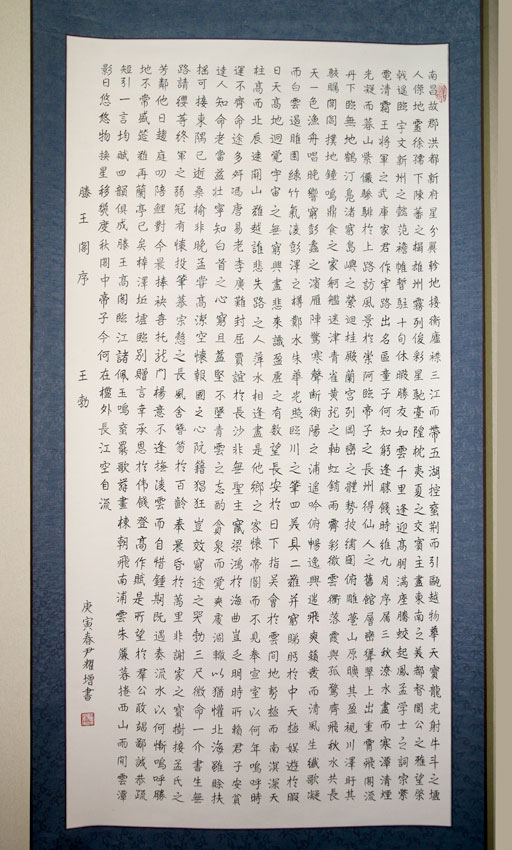 南昌故郡洪都新府星分翼軫地接衡廬襟三江而帶五湖控蠻荊而引甌越物華天寶龍光射牛斗之墟
人傑地靈徐孺下陳蕃之榻雄州霧列俊彩星馳臺隍枕夷夏之交賓主盡東南之美都督閻公之雅望棨
戟遙臨宇文新州之懿范襜帷暫駐十旬休暇勝友如雲千里逢迎高朋滿座騰蛟起鳳孟學士之詞宗紫
電清霜王將軍之武庫家君作宰路出名區童子何知躬逢勝餞時維九月序屬三秋潦水盡而寒潭清煙
光凝而暮山紫儼驂騑於上路訪風景於崇阿臨帝子之長洲得仙人之舊館層巒聳翠上出重霄飛閣流
丹下臨無地鶴汀鳧渚窮島嶼之縈迴桂殿蘭宮列岡巒之體勢披繡闥俯雕甍山原曠其盈視川澤盱其
駭矚閭閻撲地鐘鳴鼎食之家舸艦迷津青雀黃龍之軸虹銷雨霽彩徹雲衢落霞與孤鶩齊飛秋水共長
天一色漁舟唱晚響窮彭蠡之濱雁陣驚寒聲斷衡陽之浦遙吟俯暢逸興遄飛爽籟發而清風生纖歌凝
而白雲遏睢園綠竹氣凌彭澤之樽鄴水朱華光照臨川之筆四美具二難并窮睇眄於中天極娛遊於暇
日天高地迥覺宇宙之無窮興盡悲來識盈虛之有數望長安於日下指吳會於雲間地勢極而南溟深天
柱高而北辰遠關山難越誰悲失路之人萍水相逢盡是他鄉之客懷帝閽而不見奉宣室以何年嗚呼時
運不齊命途多舛馮唐易老李廣難封屈賈誼於長沙非無聖主竄梁鴻於海曲豈乏明時所賴君子安貧
達人知命老當益壯寧知白首之心窮且益堅不墜青雲之志酌貪泉而覺爽處涸轍以猶懽北海雖賒扶
搖可接東隅已逝桑榆非晚孟嘗高潔空懷報國之心阮籍猖狂豈效窮途之哭勃三尺微命一介書生無
路請纓等終軍之弱冠有懷投筆慕宗愨之長風舍簪笏於百齡奉晨昏於萬里非謝家之寶樹接孟氏之
芳鄰他日趨庭叨陪鯉對今晨捧袂喜托龍門楊意不逢撫凌雲而自惜鍾期既遇奏流水以何慚嗚呼勝
地不常盛筵難再蘭亭已矣梓澤坵墟臨別贈言幸承恩於偉餞登高作賦是所望於羣公敢竭鄙誠恭疏
短引一言均賦四韻俱成滕王高閣臨江渚佩玉鳴鸞罷歌舞畫棟朝飛南浦雲朱簾暮捲西山雨閒雲潭
影日悠悠物換星移幾度秋閣中帝子今何在檻外長江空自流
滕王閣序 王勃
庚寅春尹耀增書